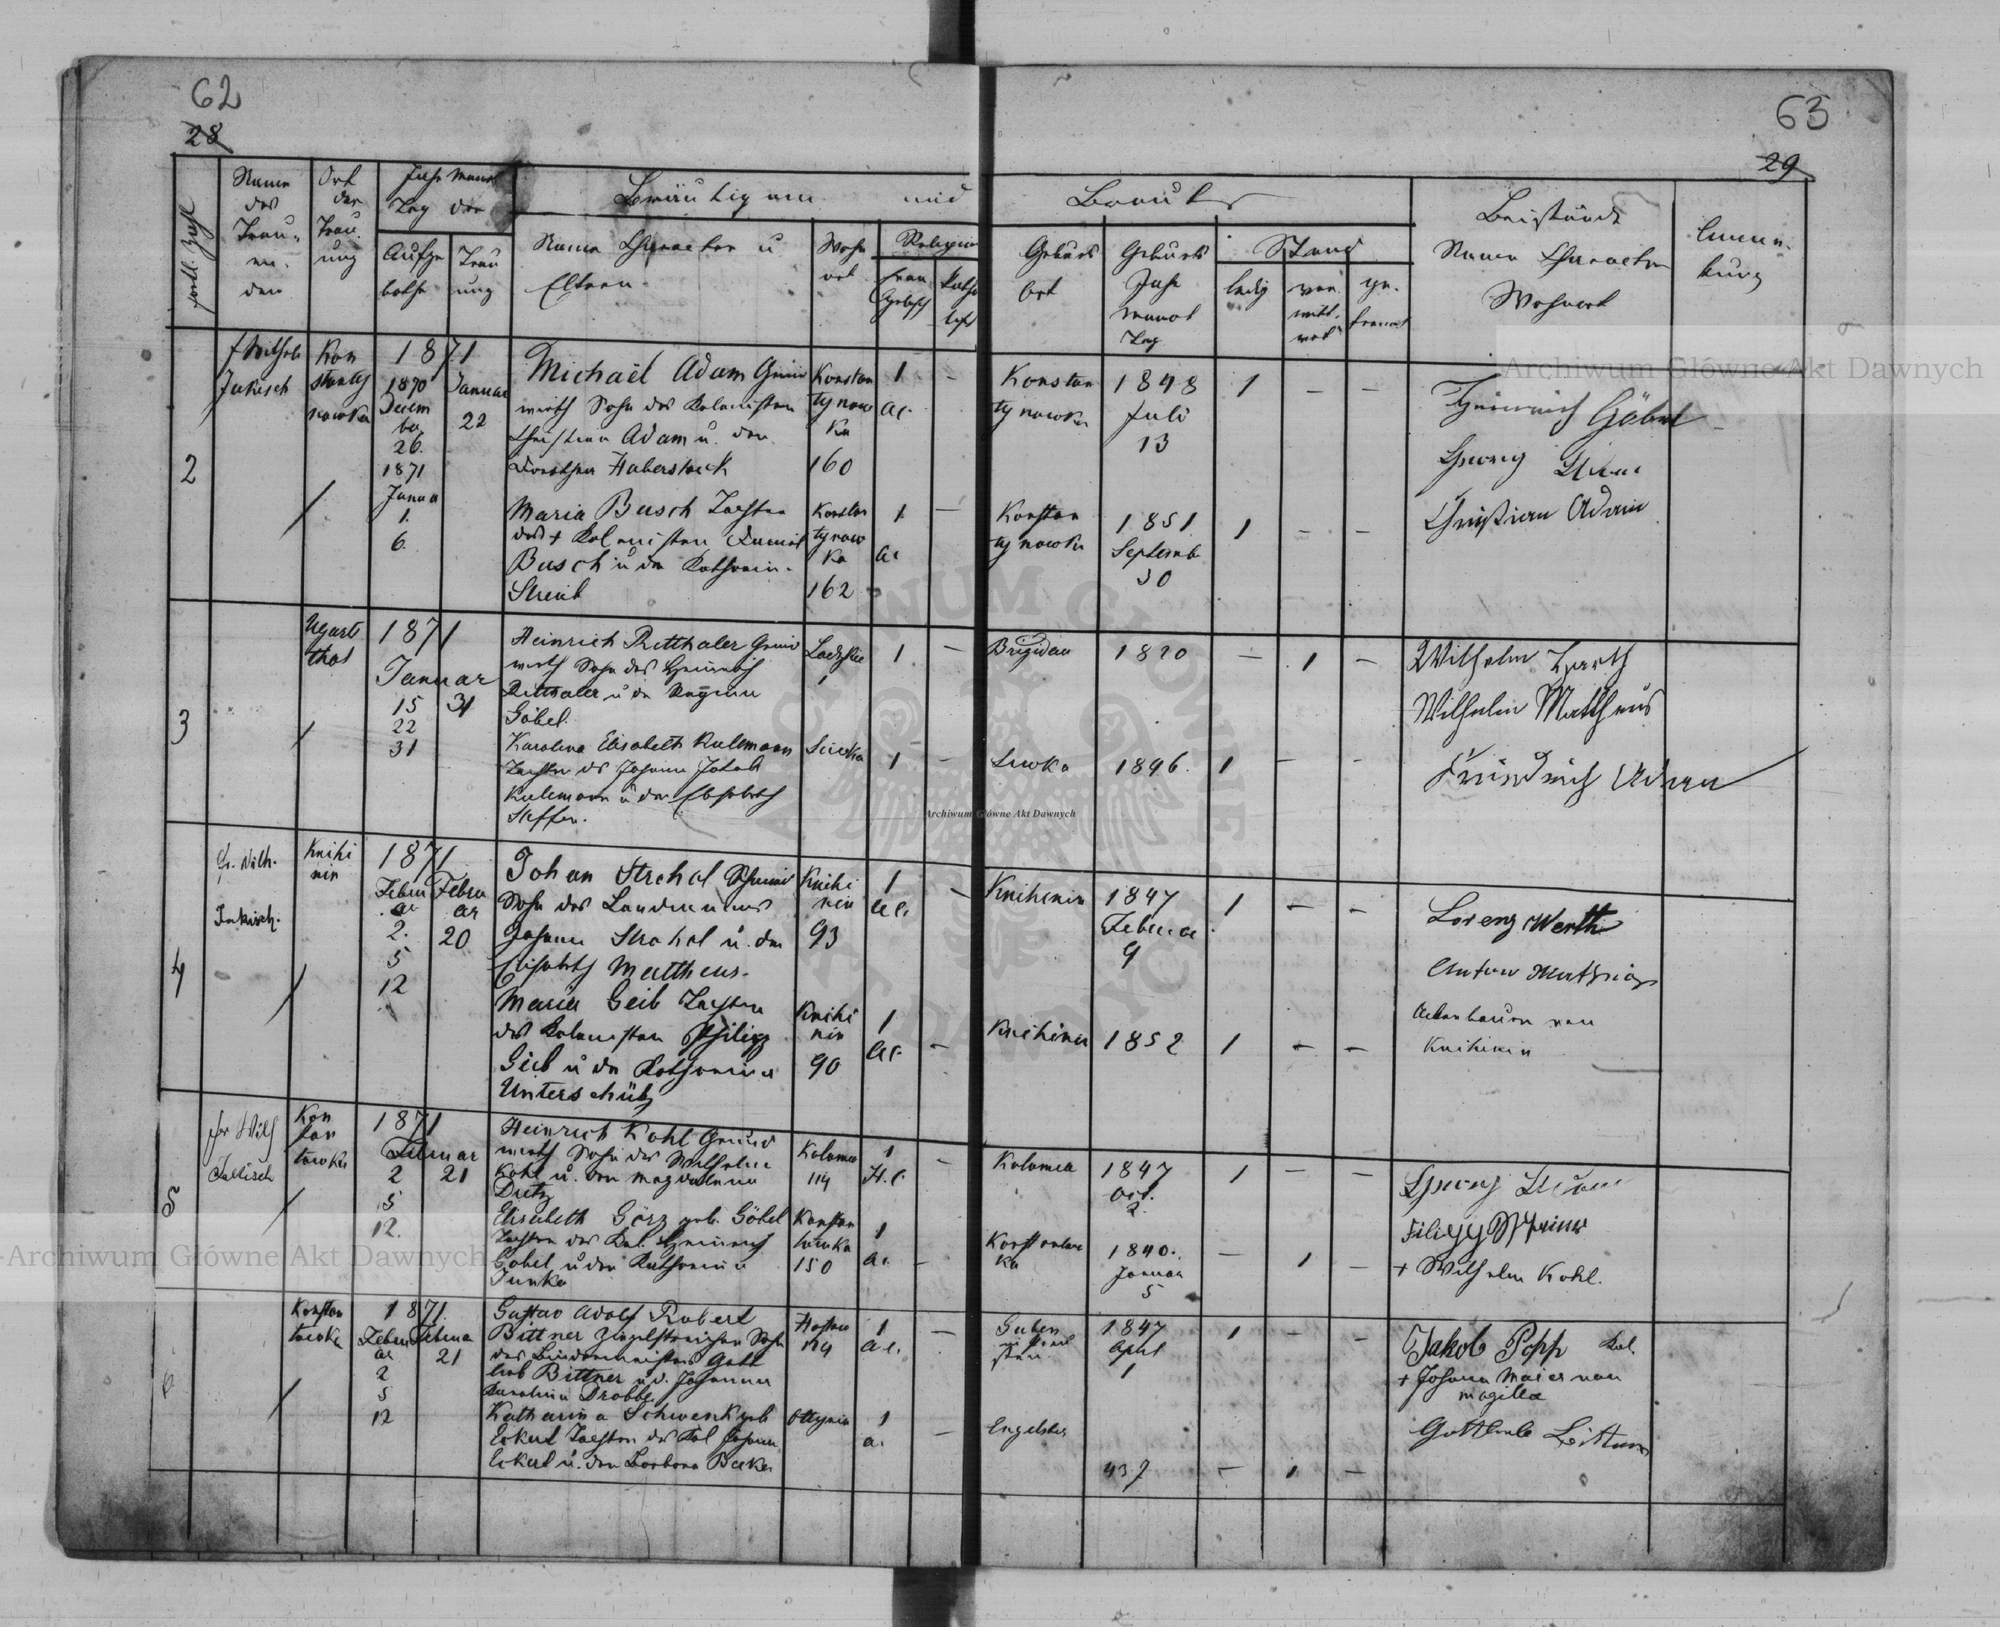 62
63
28
29
Name
des
Trau-
en-
den
Ort
der
Trau-
ung
Jahr Monat
Tag der
Aufge
bothe
Trau
ung
Bräutigam und Braut
Name Character u
Eltern
Wohn
ort
Religion
Evan
gelisch
Katho
lisch
Geburts
Ort
Geburts
Jahr
Monat
Tag
Stand
ledig
ver
witt-
wet
ge-
trennt
Beistände
Name Character
Wohnort
2
Jakisch
Kon
stanty
nowka
1871
1870
Decem
ber
26.
1871
Janua
1.
6.
Januar
22
Michael Adam Grund
wirth Sohn des Kolonisten
Christian Adam u. der
Dorothea Haberstock
Konstan
tynow
ka
160
1
A.C.
Konstan
tynowka
1848
Juli
13
1
Heinrich Göbel
Georg
Christian Adam
Maria Busch Tochter
des + Kolonisten Daniel
Busch u der Katharin-
Streib
Konstan
tynow
ka
162
1
A.C.
Konstan
tynowka
1851
Septemb
30
1
3
Ugart
thal
1871
Januar
15 31
22
31
Heinrich Ritthaler Grund
wirth Sohn des Heinrich
Ritthaler u der Regina
Göbel.
Ladzkie
1
Brigidau
1820
1
Wilhelm
Wilhelm Mattheus
Friedrich Adam
Karolina Elisabeth Kulemann
Tochter des Johann Jakob
Kulemann u der Elisabeth
Steffen.
Siwka
1
Siwka
1846.
1
4
Fr. Wilh.
Jakisch.
Knihi
nin
1871
Febru
ar
2.
5
12
Febru
ar
20
Johan Strohal Schmied
Sohn des Landmannes
Johann Strohal u. der
Elisabeth Mattheus.
Knihi
nin
93
1
A.C.
Knihinin
1847
Februar
9
1
Lorenz Werth
Anton Mathias
Ackerbauern von
Knihinin
Maria Geib Tochter
des Kolonisten Philipp
Geib u der Katharina
Unterschütz
Knihi
nin
90
1
A.C.
Knihinin
1852
1
5
Fr Wilh
Jakisch
Kon
stan
towka
1871
Februar
2 21
5
12.
Heinrich Kohl Grund
wirth Sohn des Wilhelm
Kohl u. der Magdalena
Dietz
Kolomea
114
1
H.C.
Kolomea
1847
Oct.
2.
1
Georg
Filipp
+ Wilhelm Kohl.
Elisabeth Görz geb. Göbel
Tochter des Kol. Heinrich
Göbel u der Katharina
Junker
Konstan
towka
150
1
A.C.
Konstantow
ka
1840.
Januar
5
1
6
Konstan
towka
1871.
Febru
ar
2
5
12
Februa
21
Gustav Adolf Robert
Bittner Sohn
des Bindermeisters Gott
lieb Bittner u d. Johanna
Karolina Drobbe
114
1
A.C.
Guben
1847
April
1
1
Jakob Popp Kol.
+ Johann Maier von
Mogilla
Gottlieb Bittner
Katharina Schwenk geb
Eckert Tochter des Kol Johann
Eckert u. der Barbara Becker
Ottynia
1
A.
Engelsberg
437
1
Archiwum Główne Akt Dawnych
Archiwum Główne Akt Dawnych
Archiwum Główne Akt Dawnych
ARCHIWUM GŁÓWNE AKT DAWNYCH